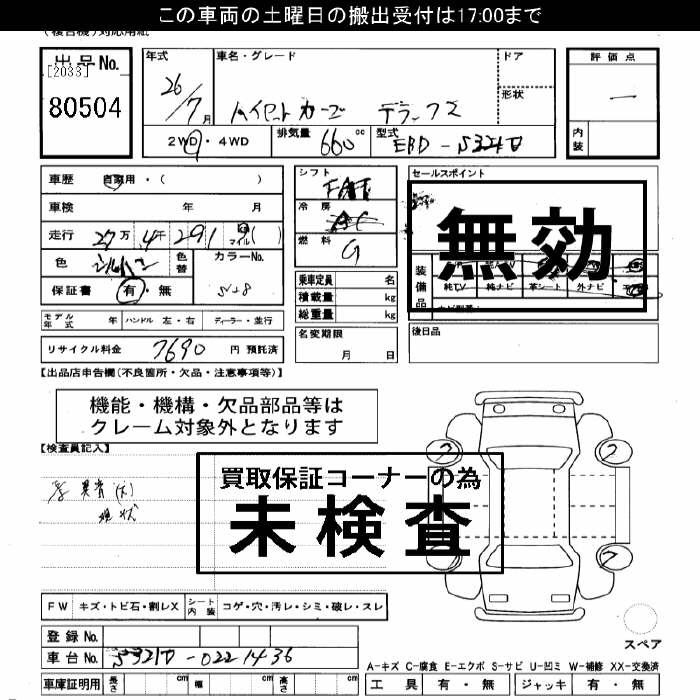 この車両の土曜日の搬出受付は17:00まで
出品No.
[2033]
80504
年式
26/7月
車名・グレード
ハイゼットカーゴ デラックス
ドア
形状
評価点
内装
2WD・4WD
排気量
660cc
型式
EBD-S321V
車歴 自家用・( )
車検 年 月
走行 27万4千291 km マイル( )
色 シルバー
色替
カラーNo.
S28
保証書 有・無
シフト
FAT
冷房
AC
燃料
G
乗車定員 名
積載量 kg
総重量 kg
セールスポイント
無効
装備品
純TV 純ナビ 革シート 外ナビ
モデル年式 年 ハンドル 左・右 ディーラー・並行
リサイクル料金 7690 円 預託済
名変期限
月 日
後日品
【出品店申告欄(不良箇所・欠品・注意事項等)】
機能・機構・欠品部品等は
クレーム対象外となります
【検査員記入】
異音(大)
現状
買取保証コーナーの為
未検査
FW キズ・トビ石・割レX シート内装 コゲ・穴・汚レ・シミ・破レ・スレ
登録No.
車台No. S321V-0221436
車庫証明用 長さ cm 幅 cm 高さ cm
スペア
A-キズ C-腐食 E-エクボ S-サビ U-凹ミ W-補修 XX-交換済
工具 有・無 ジャッキ 有・無